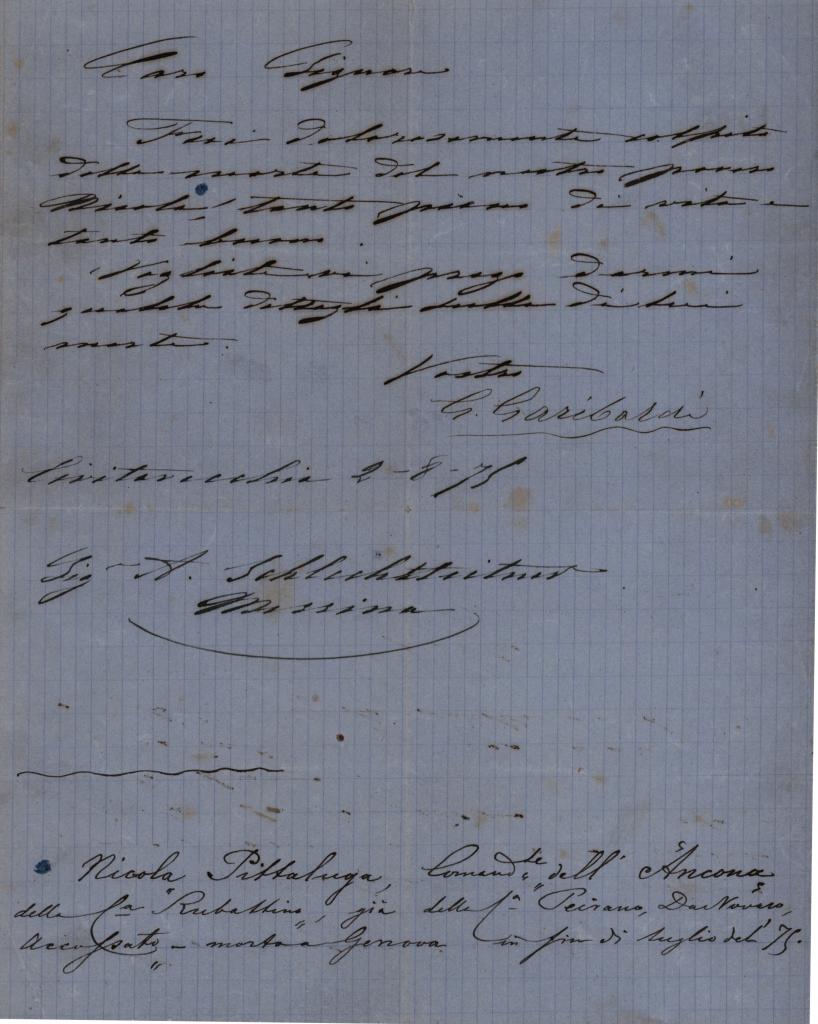 Caro Signore
Fui dolorosamente colpito
della morte del nostro povero
Nicola, tanto pieno di vita e
tanto buono.
Vogliate vi prego darmi
qualche dettaglio sulla di lui
morte.
Vostro
G. Garibaldi
Civitavecchia 2-8-75
Sig.r A. Schlechtleitner
Messina
Nicola Pittaluga, Comand.te dell' "Ancona"
della C.ia "Rubattino", già della C.ia "Peirano, Danovaro,
" - morto a Genova in fin di luglio del '75.